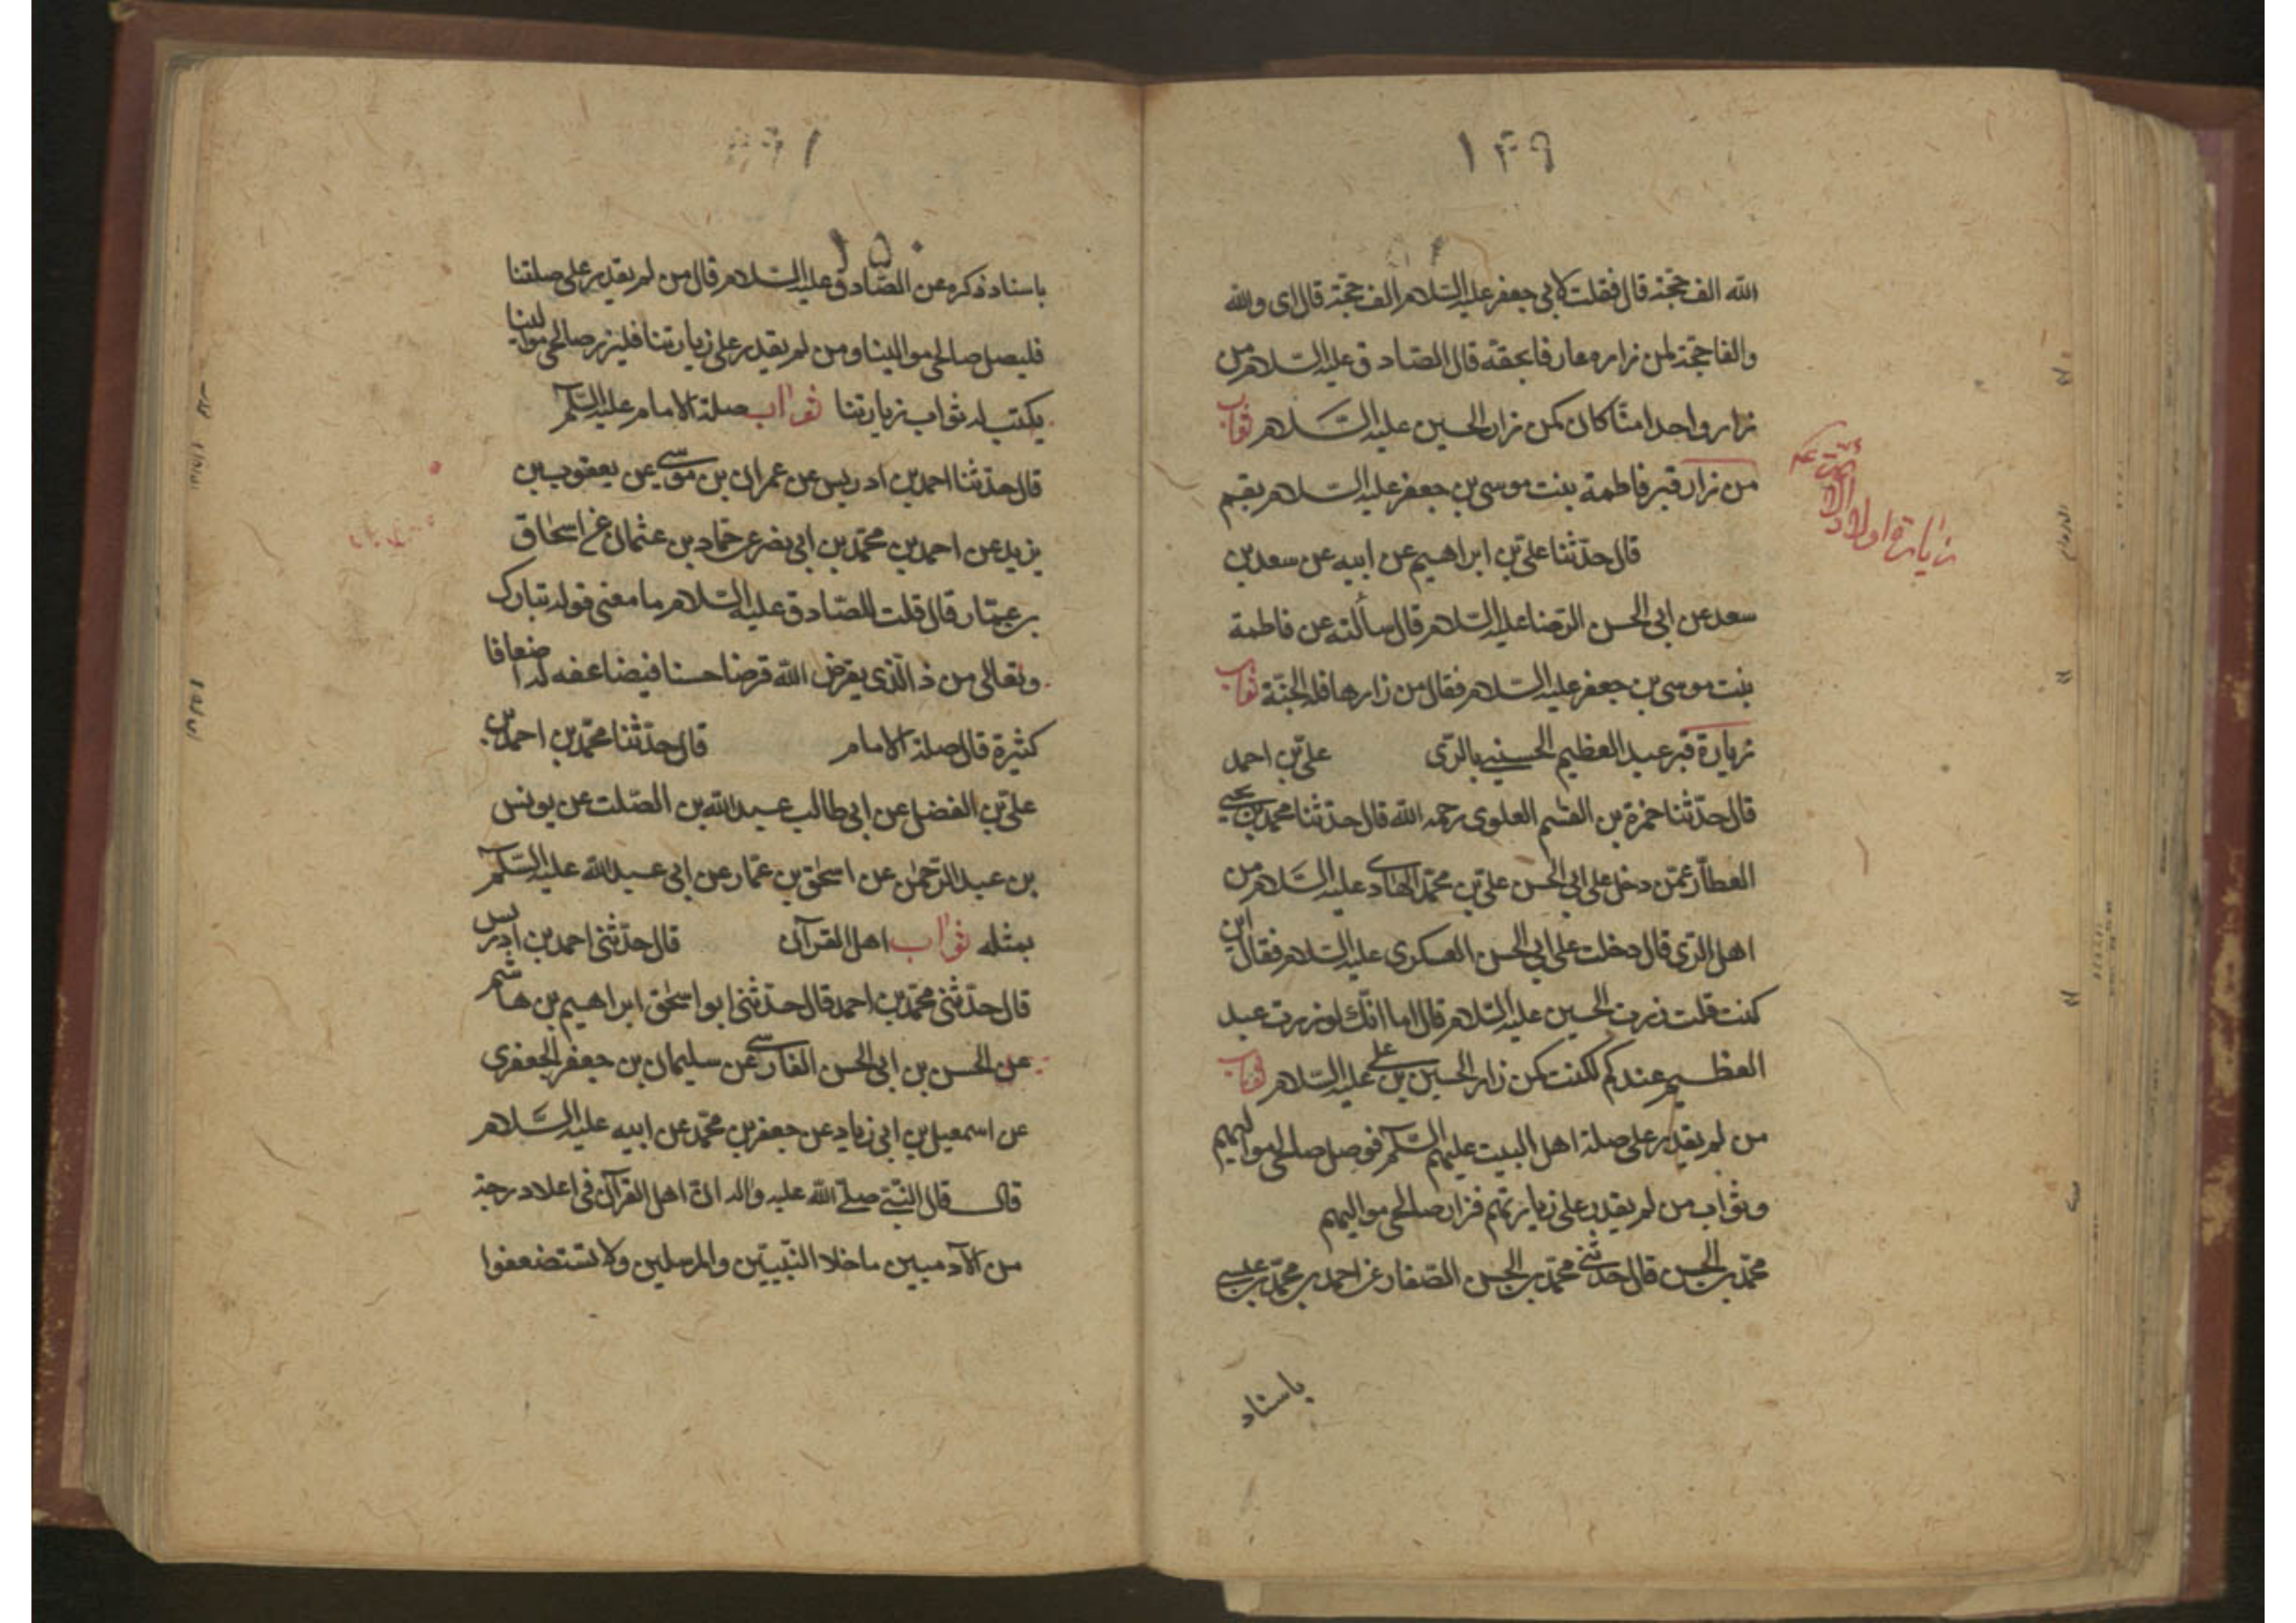 ١٤٩
الله الف حجة قال فقلت لابی جعفر علیه السلام الف حجة قال ای والله
والفا حجة لمن زاره عارفا بحقه قال الصادق علیه السلام من
زار واحدا منا کان کمن زار الحسین علیه السلام ثواب
من زار قبر فاطمة بنت موسی بن جعفر علیه السلام بقم
قال حدثنا علی بن ابراهیم عن ابیه عن سعد بن
سعد عن ابی الحسن الرضا علیه السلام قال سألته عن فاطمة
بنت موسی بن جعفر علیه السلام فقال من زارها فله الجنة ثواب
زیارة قبر عبد العظیم الحسنی بالری علی بن احمد
قال حدثنا حمزة بن القسم العلوی رحمه الله قال حدثنا محمد بن یحیی
العطار عمن دخل علی ابی الحسن علی بن محمد الهادی علیه السلام من
اهل الری قال دخلت علی ابی الحسن العسکری علیه السلام فقال این
کنت قلت زرت الحسین علیه السلام قال اما انک لو زرت عبد
العظیم عندکم لکنت کمن زار الحسین بن علی علیه السلام ثواب
من لم یقدر علی صلة اهل البیت علیهم السلم فوصل صالحی موالیهم
وثواب من لم یقدر علی زیارتهم فزار صالحی موالیهم
محمد بن الحسن قال حدثنی محمد بن الحسن الصفار عن احمد بن محمد بن عیسی
باسناد
زیارة اولاد الائمة
١٥٠
باسناد ذکره عن الصادق علیه السلام قال من لم یقدر علی صلتنا
فلیصل صالحی موالینا ومن لم یقدر علی زیارتنا فلیزر صالحی موالینا
یکتب له ثواب زیارتنا ثواب صلة الامام علیه السلم
قال حدثنا احمد بن ادریس عن عمران بن موسی عن یعقوب بن
یزید عن احمد بن محمد بن ابی نصر عن حماد بن عثمان عن اسحاق
بن عمار قال قلت للصادق علیه السلام ما معنی قوله تبارک
وتعالی من ذا الذی یقرض الله قرضا حسنا فیضاعفه له اضعافا
کثیرة قال صلة الامام قال حدثنا محمد بن احمد بن
علی بن الفضل عن ابی طالب عبدالله بن الصلت عن یونس
بن عبد الرحمن عن اسحق بن عمار عن ابی عبد الله علیه السلم
بمثله ثواب اهل القرآن قال حدثنی احمد بن ادریس
قال حدثنی محمد بن احمد قال حدثنی ابو اسحق ابراهیم بن هاشم
عن الحسن بن ابی الحسن الفارسی عن سلیمان بن جعفر الجعفری
عن اسمعیل بن ابی زیاد عن جعفر بن محمد عن ابیه علیه السلام
قال قال النبی صلی الله علیه واله ان اهل القرآن فی اعلا درجة
من الآدمیین ما خلا النبیین والمرسلین ولا تستضعفوا